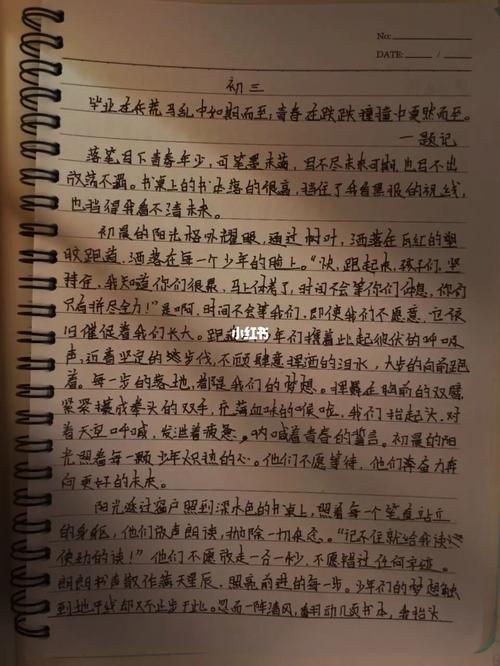 No:
DATE: / /
初三
毕业在兵荒马乱中如期而至,青春在跌跌撞撞中戛然而至。
—题记
落笔目下青春年少,可笔墨未满,目不尽未来可期,也目不出
放荡不羁。书桌上的书本落的很高,挡住了我看黑板的视线,
也挡得我看不清未来。
初晨的阳光格外耀眼,通过树叶,洒落在瓦红的塑
胶跑道,洒落在每一个少年的脸上。"快,跟起来,孩子们,坚
持住,我知道你们很累,马上体考了,时间不会等你们休息,你们
只有拼尽全力!"是啊,时间不会等我们,即使我们不愿意,它依
旧催促着我们长大。跑 年们 着此起彼伏的呼吸
声,迈着坚定的 步伐,不顾肆意挥洒的泪水,大步的向前跑
着。每一步的落地,都是我们的梦想。 在胸前的双臂,
紧紧攥成拳头的双手,充满血味的喉咙,我们抬起头,对
着天空呼喊,发泄着疲惫,呐喊着青春的誓言。初晨的阳
光照着每一颗少年炽热的心。他们不愿等待,他们奔奋力奔
向更好的未来。
阳光透过窗户照到深木色的书桌上,照着每一个笔直站立
的身躯,他们放声朗读,抛除一切杂念。"记不住就给我读,
使劲的读!"他们不愿放走一分一秒,不愿错过任何字迹。
朗朗书声散作满天星辰,照亮前进的每一步。少年们的梦想触
到地平线却又不止步于此。忽而一阵清风,翻动几页书本,我抬头
小红书